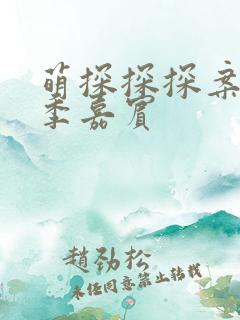 萌探探探案
季嘉宾
趙劲松
未任同意禁止转载